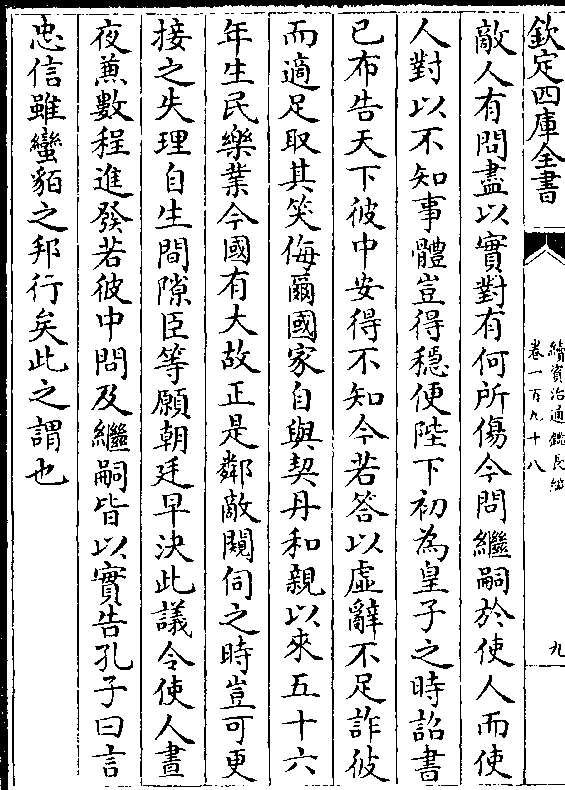 欽定四庫全書
續資治通鑑長編
卷一百九十八
九
敵人有問盡以實對有何所傷今問繼嗣於使人而使
人對以不知事體豈得穩便陛下初為皇子之時詔書
已布告天下彼中安得不知今若答以虛辭不足詐彼
而適足取其笑侮爾國家自與契丹和親以來五十六
年生民樂業今國有大故正是鄰敵闚伺之時豈可更
接之失理自生間隙臣等願朝廷早決此議令使人晝
夜兼數程進發若彼中問及繼嗣皆以實告孔子曰言
忠信雖蠻貊之邦行矣此之謂也